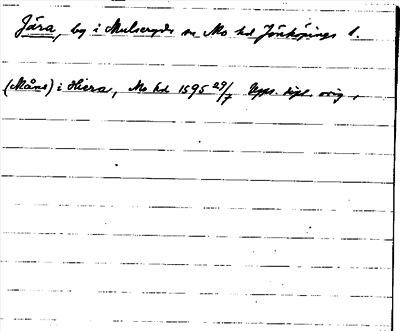 Jära, by i Mulseryds sn Mo hd Jönköpings l.
(Måns) i Hiera, Mo hd 1595 29/7 Upps. dipl. orig.